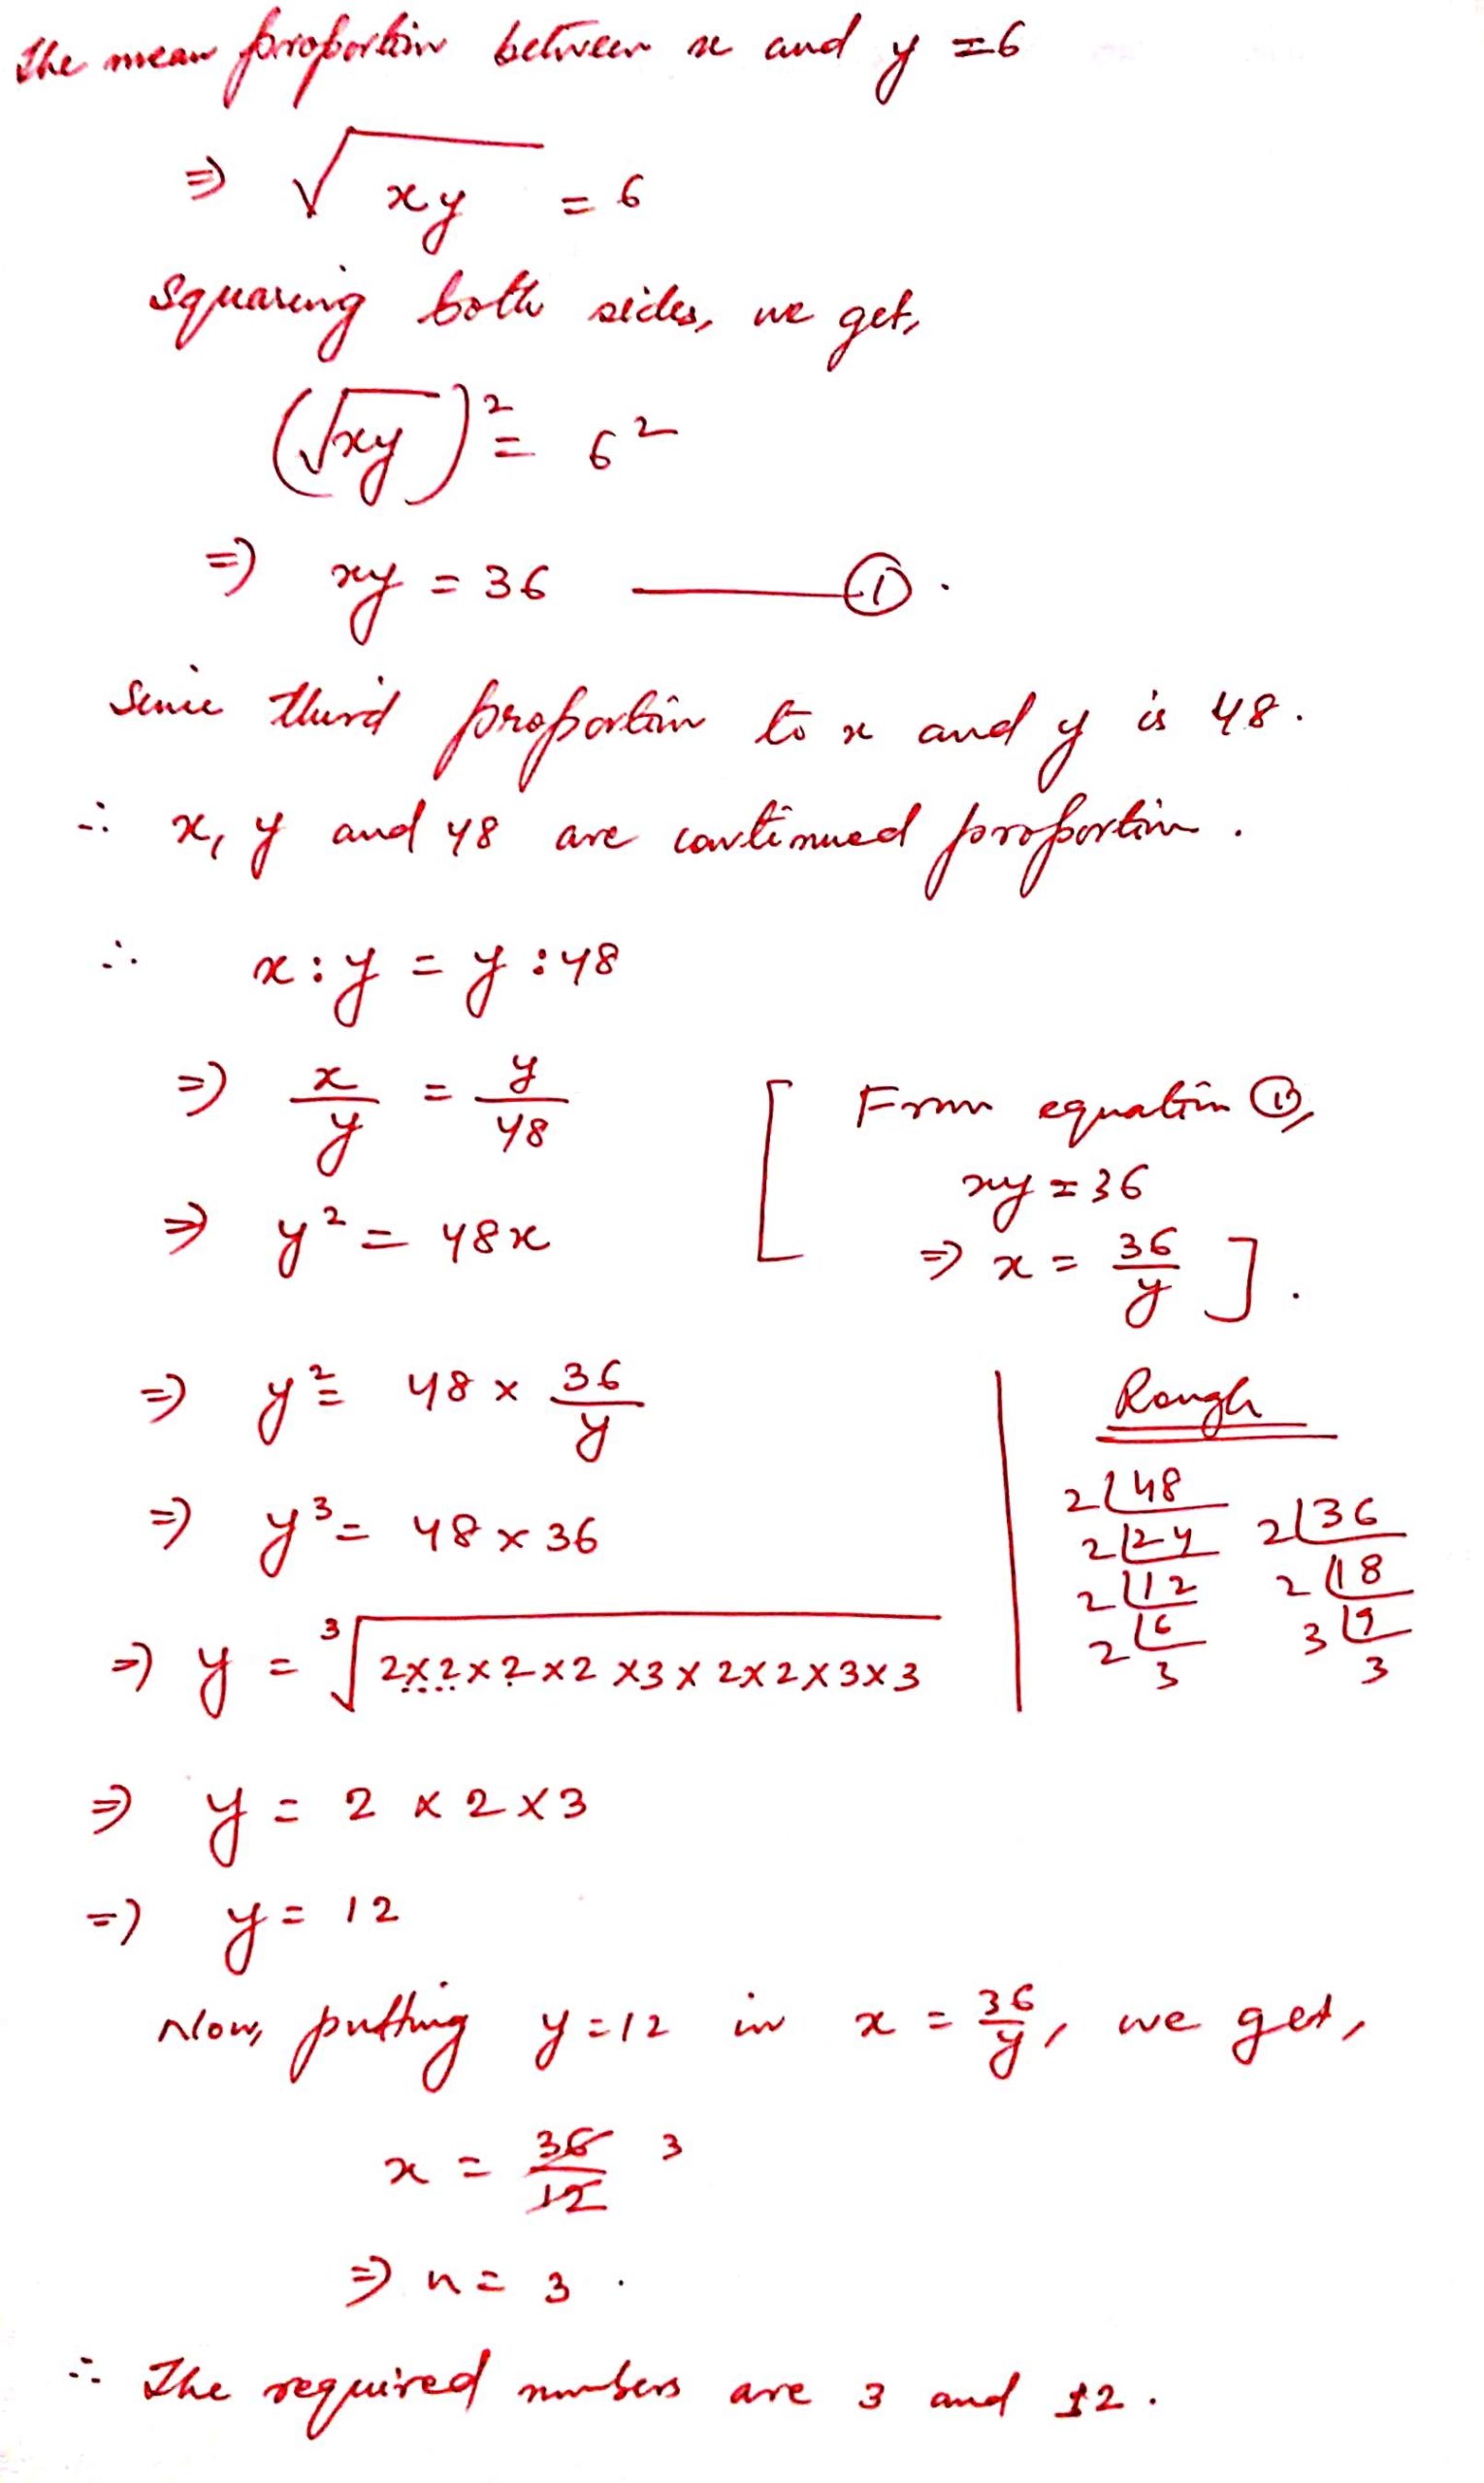 The mean proportion between x and y = 6
⇒ √xy = 6
Squaring both sides, we get,
(√xy)² = 6²
⇒ xy = 36 ——— ①.
Since third proportion to x and y is 48.
∴ x, y and 48 are continued proportion.
∴ x : y = y : 48
⇒ x/y = y/48
⇒ y² = 48x
[ From equation ①,
xy = 36
⇒ x = 36/y ].
⇒ y² = 48 × 36/y
⇒ y³ = 48 × 36
⇒ y = ³√2×2×2×2×3×2×2×3×3
Rough
2 | 48
2 | 24
2 | 12
2 | 6
3
2 | 36
2 | 18
3 | 9
3
⇒ y = 2 × 2 × 3
⇒ y = 12
Now, putting y = 12 in x = 36/y, we get,
x = 36/12 3
⇒ x = 3.
∴ The required numbers are 3 and 12.